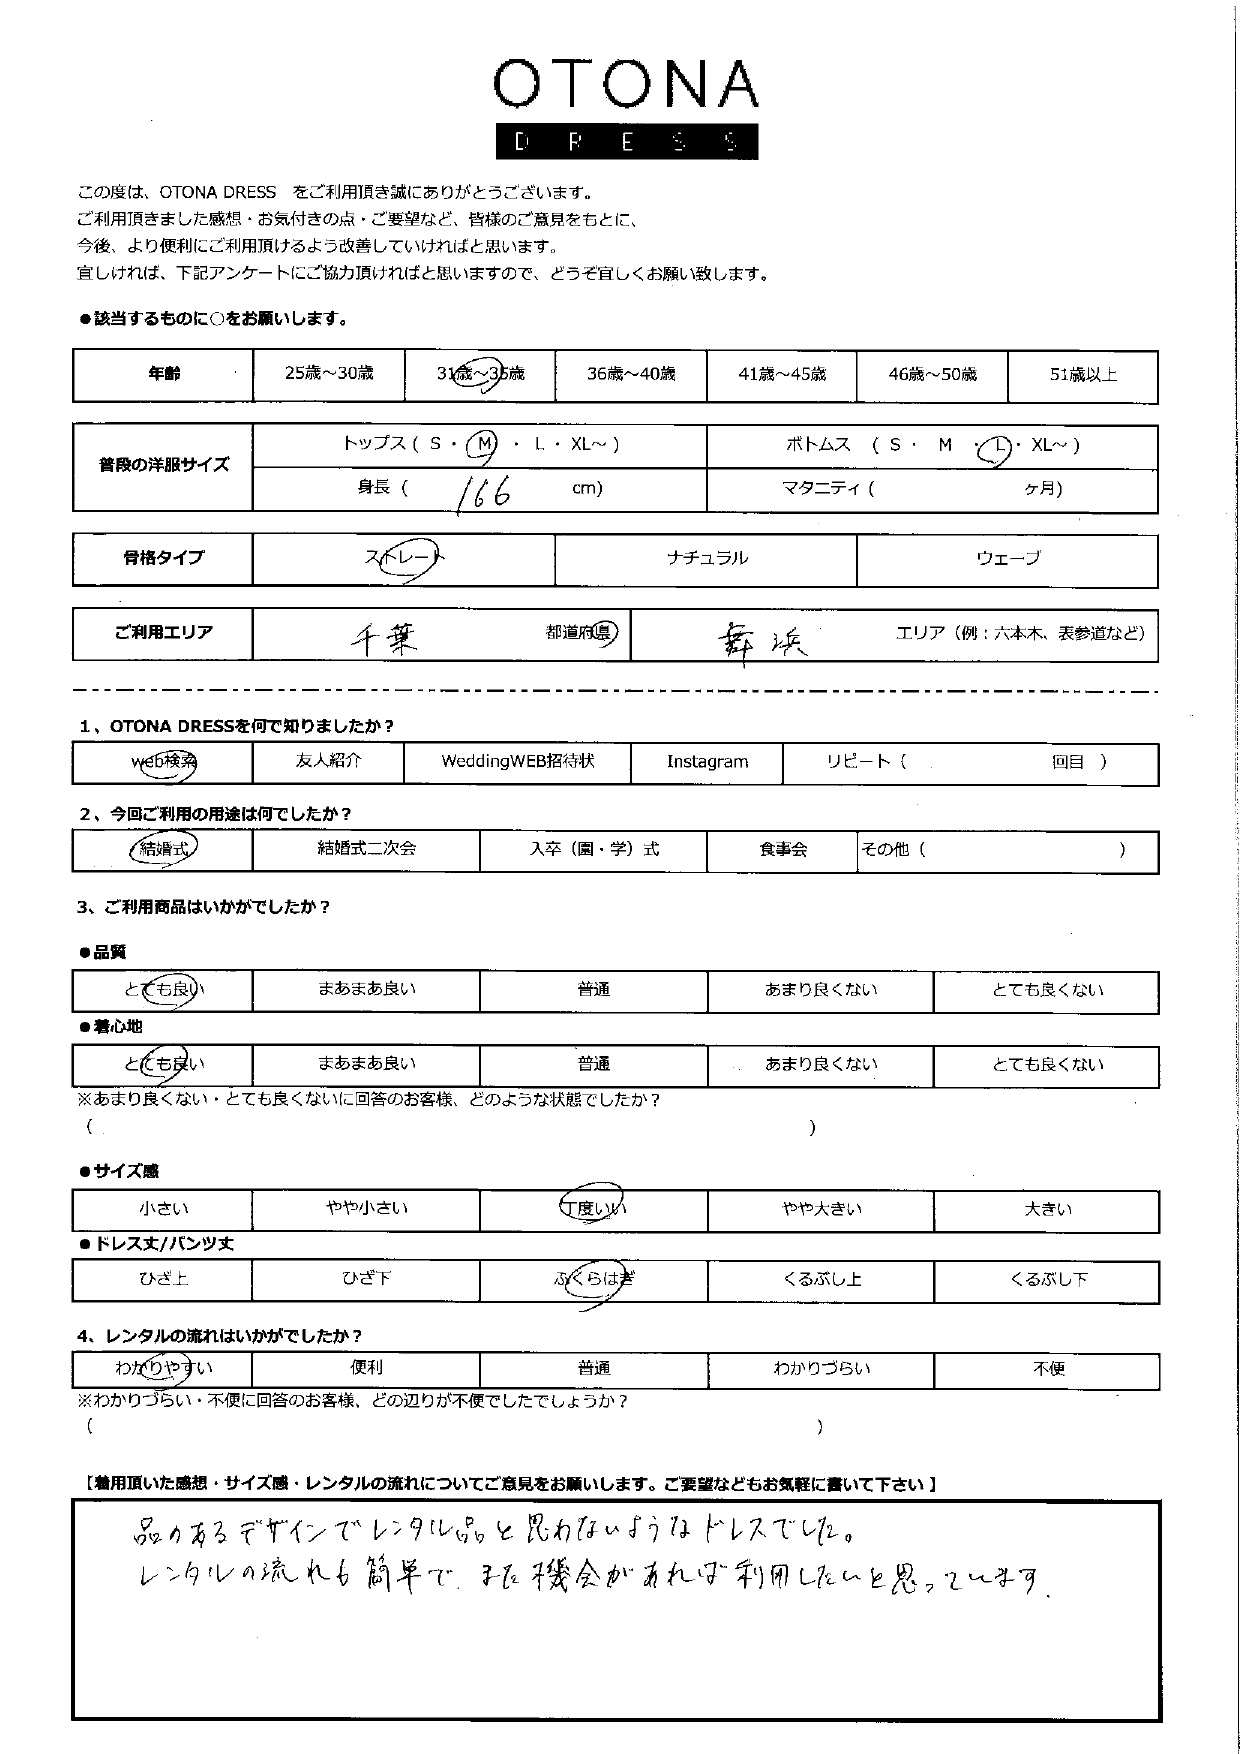 OTONA
DRESS
この度は、OTONA DRESS をご利用頂き誠にありがとうございます。
ご利用頂きました感想・お気付きの点・ご要望など、皆様のご意見をもとに、
今後、より便利にご利用頂けるよう改善していければと思います。
宜しければ、下記アンケートにご協力頂ければと思いますので、どうぞ宜しくお願い致します。
●該当するものに○をお願いします。
年齢 25歳～30歳 31歳～35歳 36歳～40歳 41歳～45歳 46歳～50歳 51歳以上
普段の洋服サイズ トップス ( S ・ M ・ L ・ XL～ ) ボトムス ( S ・ M ・ L ・ XL～ )
身長 ( 166 cm) マタニティ ( ヶ月)
骨格タイプ ストレート ナチュラル ウェーブ
ご利用エリア 千葉 都道府県 舞浜 エリア（例：六本木、表参道など）
1、OTONA DRESSを何で知りましたか？
web検索 友人紹介 WeddingWEB招待状 Instagram リピート ( 回目 )
2、今回ご利用の用途は何でしたか？
結婚式 結婚式二次会 入卒（園・学）式 食事会 その他 ( )
3、ご利用商品はいかがでしたか？
●品質
とても良い まあまあ良い 普通 あまり良くない とても良くない
●着心地
とても良い まあまあ良い 普通 あまり良くない とても良くない
※あまり良くない・とても良くないに回答のお客様、どのような状態でしたか？
( )
●サイズ感
小さい やや小さい 丁度いい やや大きい 大きい
●ドレス丈/パンツ丈
ひざ上 ひざ下 ふくらはぎ くるぶし上 くるぶし下
4、レンタルの流れはいかがでしたか？
わかりやすい 便利 普通 わかりづらい 不便
※わかりづらい・不便に回答のお客様、どの辺りが不便でしたでしょうか？
( )
【着用頂いた感想・サイズ感・レンタルの流れについてご意見をお願いします。ご要望などもお気軽に書いて下さい】
品のあるデザインでレンタル品と思わないようなドレスでした。
レンタルの流れも簡単で、また機会があれば利用したいと思っています.